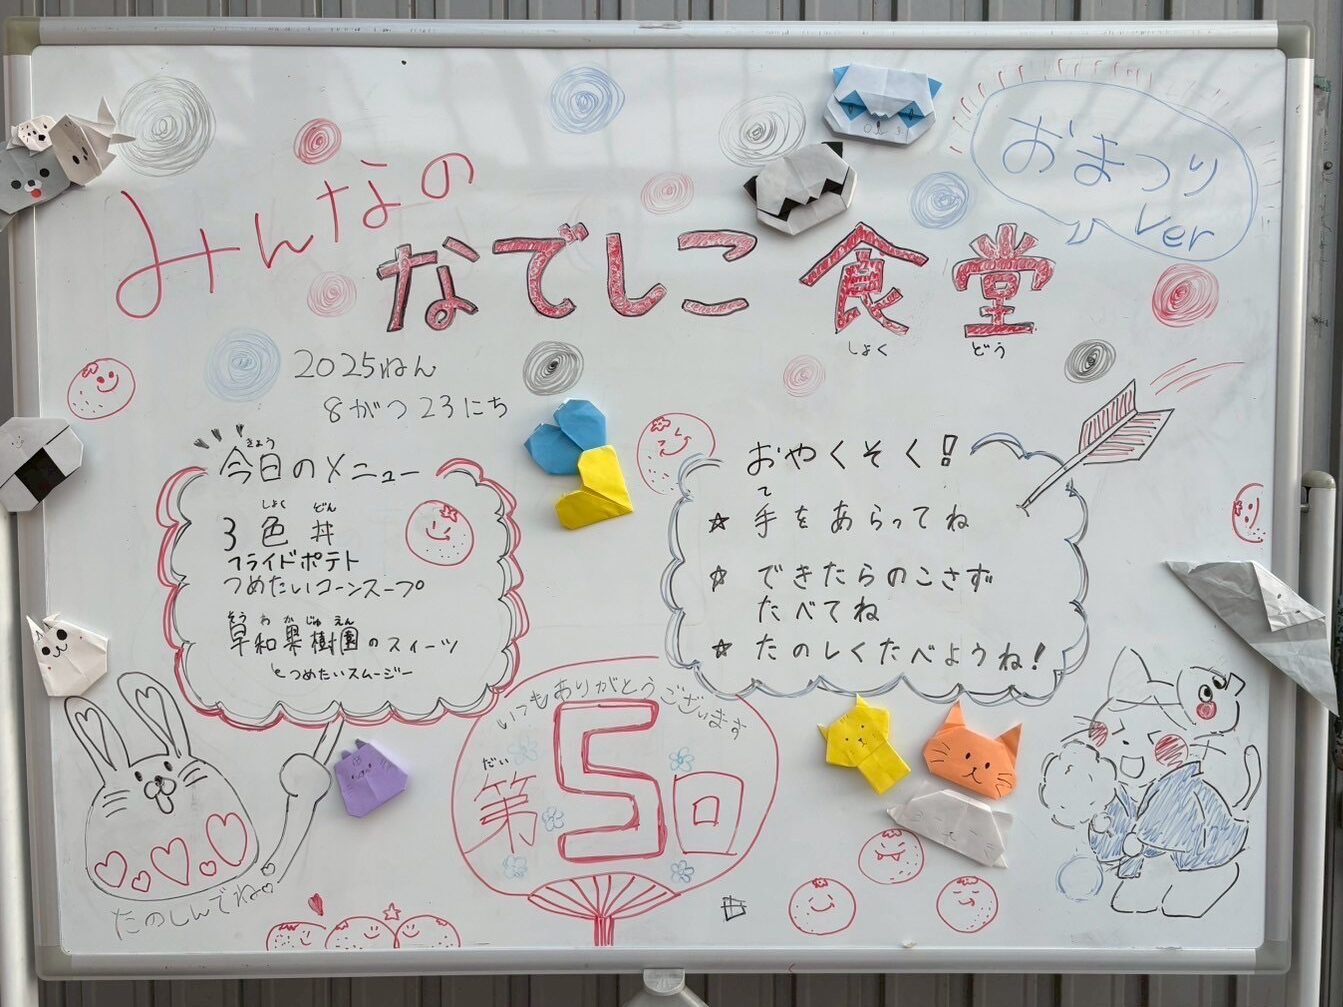 みんなの
なでしこ食堂
しょく どう
おまつり
ver
2025ねん
8がつ23にち
きょう
今日のメニュー
しょく どん
3色丼
フライドポテト
つめたいコーンスープ
そう わ か じゅ えん
草和果樹園のスイーツ
とつめたいスムージー
おやくそく!
て
☆ 手をあらってね
☆ できたらのこさず
たべてね
☆ たのしくたべようね!
いつもありがとうございます
だい
第5回
たのしんでね